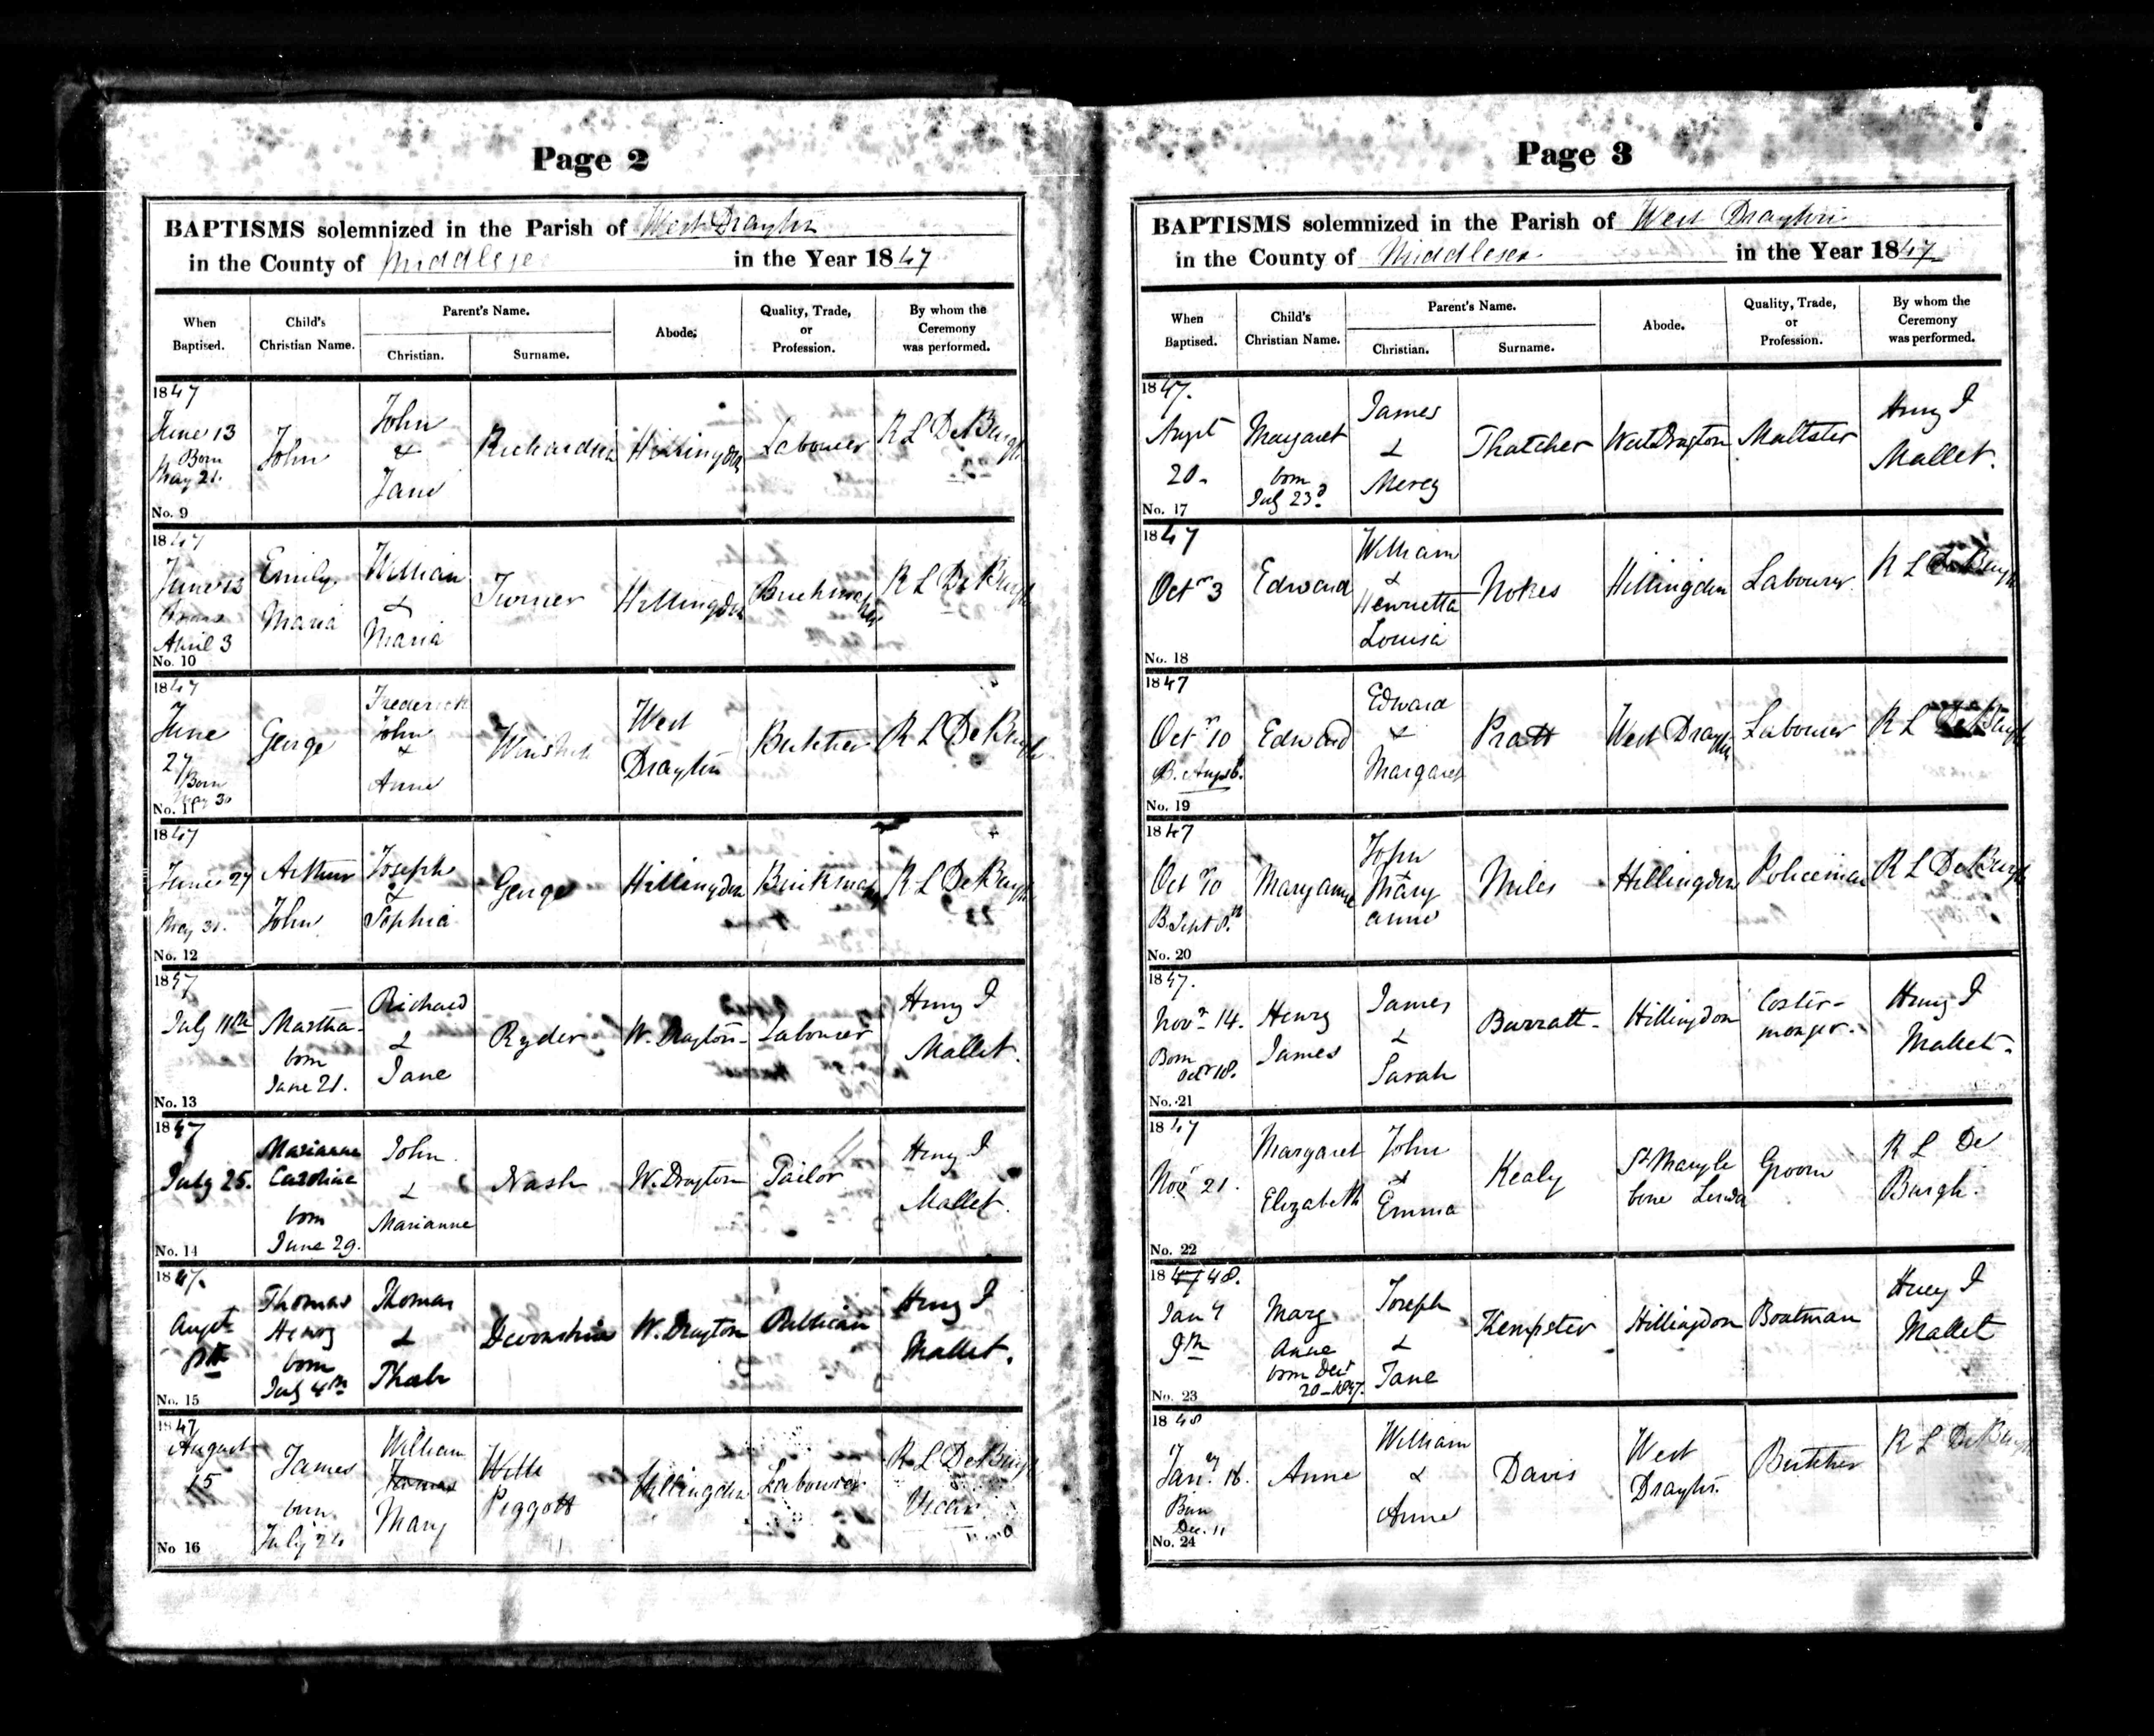 Page 2
BAPTISMS solemnized in the Parish of West Drayton
in the County of Middlesex in the Year 1847
When Baptised.
Child's Christian Name.
Parent's Name.
Christian.
Surname.
Abode.
Quality, Trade, or Profession.
By whom the Ceremony was performed.
1847
June 13
Born
May 21.
No. 9
John
John
&
Jane
Richardson
Hillingdon
Labourer
R L De Burgh
1847
June 13
April 3
No. 10
Emily
Maria
William
&
Maria
Turner
Hillingdon
Brickmaker
R L De Burgh
1847
June
27
Born
May 30
No. 11
George
Frederick
John
&
Anne
West
Drayton
Butcher
R L De Burgh
1847
June 27
May 31.
No. 12
Arthur
John
Joseph
&
Sophia
George
Hillingdon
Brickmaker
R L De Burgh
1847
July 11th
No. 13
Martha
born
June 21.
Richard
&
Jane
Ryder
W. Drayton
Labourer
Henry I
Mallet.
1847
July 25.
No. 14
Marianne
Caroline
born
June 29.
John
&
Marianne
Nash
W. Drayton
Tailor
Henry I
Mallet.
1847.
Augst
No. 15
Thomas
Henry
born
July 4th
Thomas
&
Devonshire
W. Drayton
Publican
Henry I
Mallet.
1847
August
15
No 16
James
born
July 24
William
Mary
Piggott
Hillingdon
Labourer
R L De Burgh
Vicar
Page 3
BAPTISMS solemnized in the Parish of West Drayton
in the County of Middlesex in the Year 1847
When Baptised.
Child's Christian Name.
Parent's Name.
Christian.
Surname.
Abode.
Quality, Trade, or Profession.
By whom the Ceremony was performed.
1847.
Augst
20.
No. 17
Margaret
born
July 23d
James
&
Mercy
Thatcher
West Drayton
Maltster
Henry I
Mallet.
1847
Octr 3
No. 18
Edward
William
&
Henrietta
Louisa
Nokes
Hillingdon
Labourer
R L De Burgh
1847
Octr 10
B. Augst 6.
No. 19
Edward
Edward
&
Margaret
Pratt
West Drayton
Labourer
R L De Burgh
1847
Octr 10
B. Sept 8th
No. 20
Mary anne
John
&
Mary
anne
Miles
Hillingdon
Policeman
R L De Burgh
1847.
Novr 14.
Born
Octr 18.
No. 21
Henry
James
James
&
Sarah
Barratt
Hillingdon
Coster-
monger.
Henry I
Mallet.
1847
Novr 21.
No. 22
Margaret
Elizabeth
John
&
Emma
Kealy
St Maryle
bone London
Groom
R L De
Burgh.
1847 48.
Jany
9th
No. 23
Mary
Anne
born Decr
20-1847.
Joseph
&
Jane
Kempster
Hillingdon
Boatman
Henry I
Mallet
1848
Jany 16.
Born
Dec. 11
No. 24
Anne
William
&
Anne
Davis
West
Drayton
Butcher
R L De Burgh